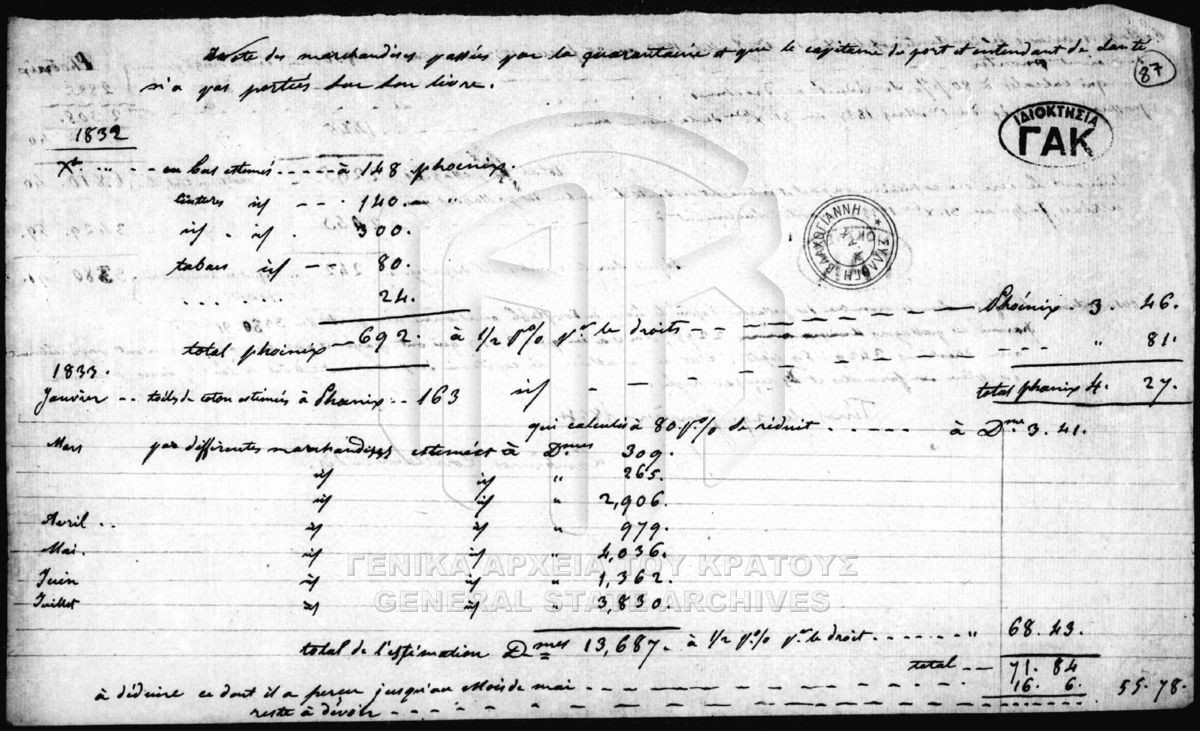 Note des marchandises passées par la quarantaine et que le capitaine du port et intendant de santé
n'a pas portées sur son livre.
87
ΙΔΙΟΚΤΗΣΙΑ
ΓΑΚ
ΣΥΛΛΟΓΗ ΒΛΑΧΟΓΙΑΝΝΗ
1832
Xbre " " - - en bas estimés - - - - - à 148 phoenix.
id - - - 140. - "
id . id . 300.
tabacs id - - 80.
. . . . 24.
total phoinix - 692. à 1/2 p% pr. le droits - - - - - - - - Phoénix. 3. 46.
1833. - - - - " 81.
Janvier - - toiles de coton estimés à Phoenix - - 163 id - - - - - - total phoenix 4. 27.
qui calculés à 80 p% se réduit - - - - - à Dmes. 3. 41.
Mars par différentes marchandises estimées à Dmes 309.
id id " 265.
id id " 2,906.
Avril . . id id " 979.
Mai. id id " 4,036.
Juin id id " 1,362.
Juillet id id " 3,830.
ΓΕΝΙΚΑ ΑΡΧΕΙΑ ΤΟΥ ΚΡΑΤΟΥΣ
GENERAL STATE ARCHIVES
total de l'estimation Dmes 13,687. à 1/2 p% pr. le droit - - - - - - - " 68. 43.
total - - 71. 84
à déduire ce dont il a perçu jusqu'au Mois de mai - - - - - - - - 16. 6. 55. 78.
reste à devoir - - - - - - - - - - - -